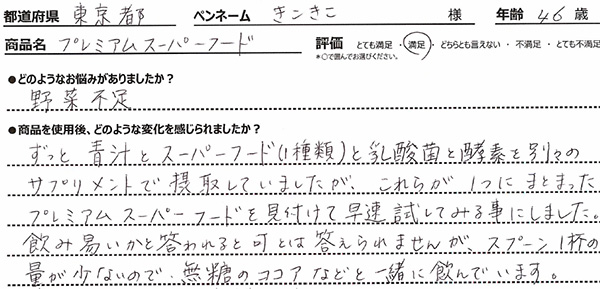 都道府県 東京都 ペンネーム きンきこ 様 年齢 46 歳
商品名 プレミアムスーパーフード 評価 とても満足・満足・どちらとも言えない・不満足・とても不満足
*○で囲んでお選びください。
●どのようなお悩みがありましたか？
野菜不足
●商品を使用後、どのような変化を感じられましたか？
ずっと青汁とスーパーフード(1種類)と乳酸菌と酵素を別々の
サプリメントで摂取していましたが、これらが1つにまとまった
プレミアムスーパーフードを見付けて早速試してみる事にしました。
飲み易いかと答われると可とは答えられませんが、スプーン1杯の
量が少ないので、無糖のココアなどと一緒に飲んでいます。